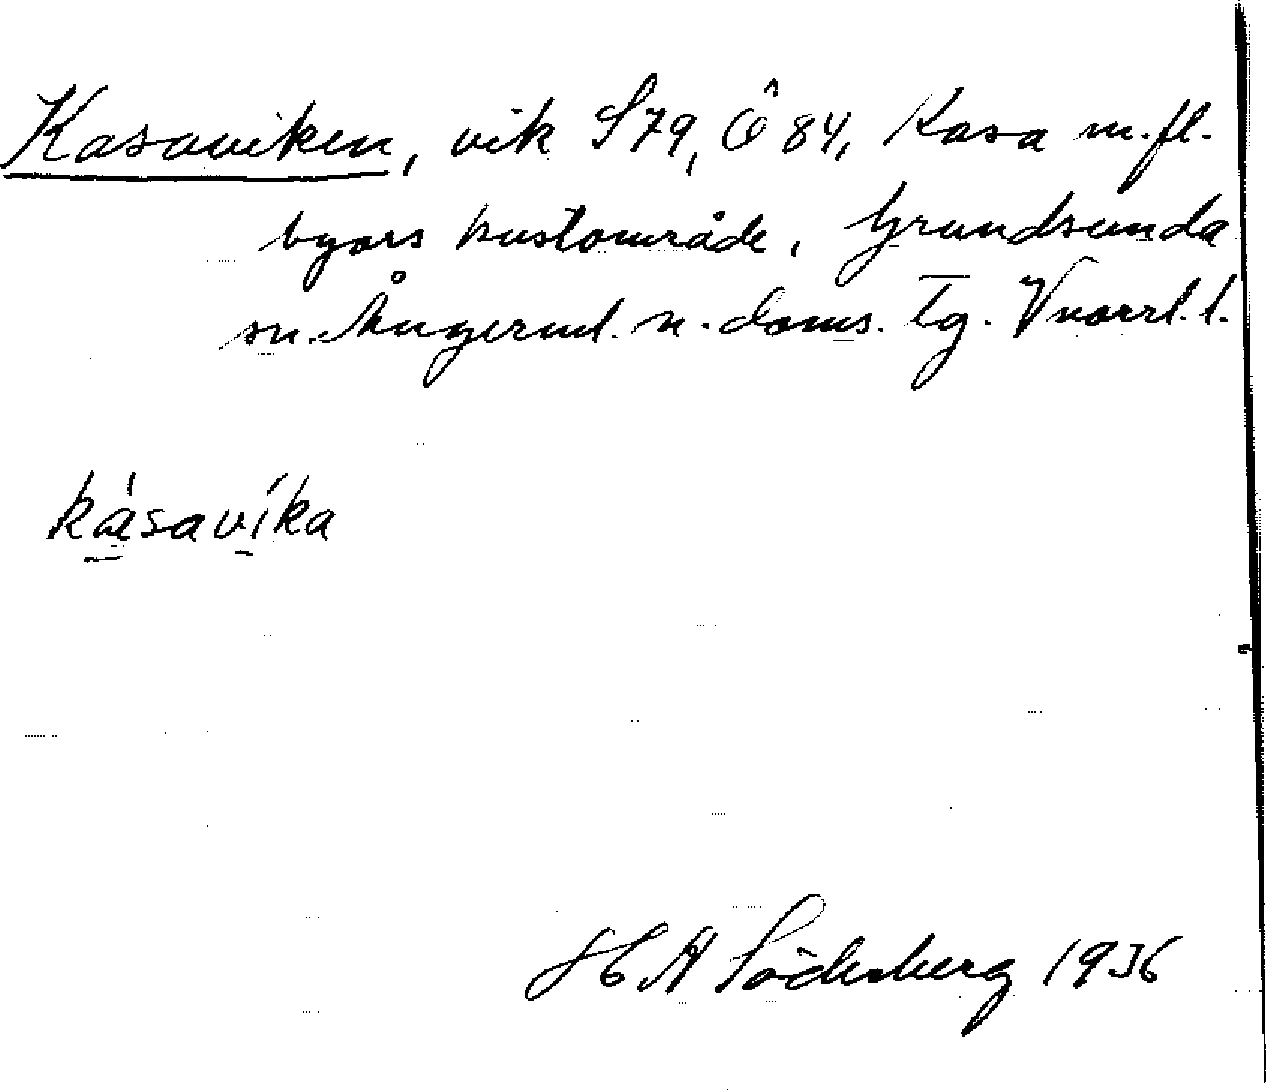 Kasaviken, vik S79, Ö 84, Kasa m.fl.
byars kustområde, Grundsunda
sn. Ångerml. n. doms. Tg. Vnorrl. l.
kásavíka
H A Söderberg 1936